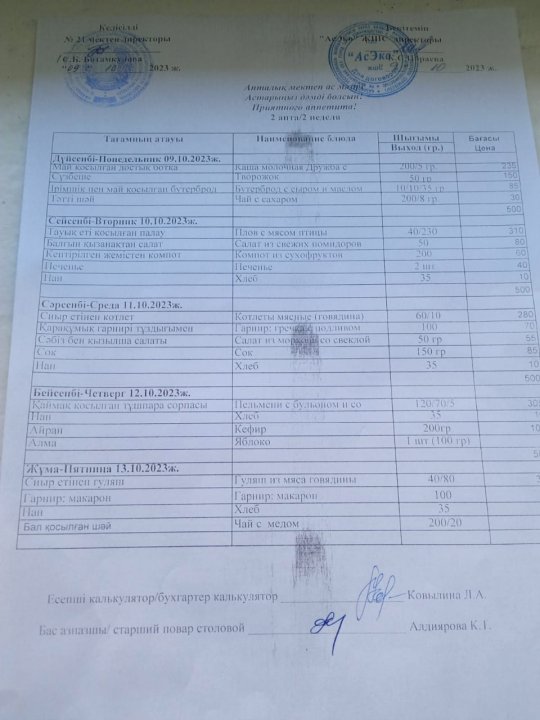 Келісілді
№ 21 мектеп директоры
Б. Ботамкулова
2023 ж.
Бекітемін
"АсЭко" ЖШС директоры
"АсЭко"
10 2023 ж.
Апталық мектеп ас мәзірі
Астарыңыз дәмді болсын!
Приятного аппетита!
2 апта/2 неделя
Тағамның атауы Наименование блюда Шығымы Выход (гр.) Бағасы Цена
Дүйсенбі-Понедельник 09.10.2023ж.
Май қосылған достық ботқа Каша молочная Дружба с 200/5 гр. 235
Сүзбеше Творожок 50 гр 150
Ірімшік пен май қосылған бутерброд Бутерброд с сыром и маслом 10/10/35 гр 85
Тәтті шәй Чай с сахаром 200/8 гр 30
500
Сейсенбі-Вторник 10.10.2023ж.
Тауық еті қосылған палау Плов с мясом птицы 40/230 310
Балғын қызанақтан салат Салат из свежих помидоров 50 80
Кептірілген жемістен компот Компот из сухофруктов 200 60
Печенье Печенье 2 шт 40
Нан Хлеб 35 10
500
Сәрсенбі-Среда 11.10.2023ж.
Сиыр етінен котлет Котлеты мясные (говядина) 60/10 280
Қарақұмық гарнирі тұздығымен Гарнир: гречка с подливом 100 70
Сәбіз бен қызылша салаты Салат из моркови со свеклой 50 гр 55
Сок Сок 150 гр 85
Нан Хлеб 35 10
500
Бейсенбі-Четверг 12.10.2023ж.
Қаймақ қосылған тұшпара сорпасы Пельмени с бульоном и со 120/70/5 30
Нан Хлеб 35 1
Айран Кефир 200гр 10
Алма Яблоко 1 шт (100 гр)
5
Жұма-Пятница 13.10.2023ж.
Сиыр етінен гуляш Гуляш из мяса говядины 40/80 3
Гарнир: макарон Гарнир: макарон 100
Нан Хлеб 35
Бал қосылған шәй Чай с медом 200/20
Есепші калькулятор/бухгартер калькулятор Ковылина Л.А.
Бас аспазшы/ старший повар столовой Алдиярова К.Т.